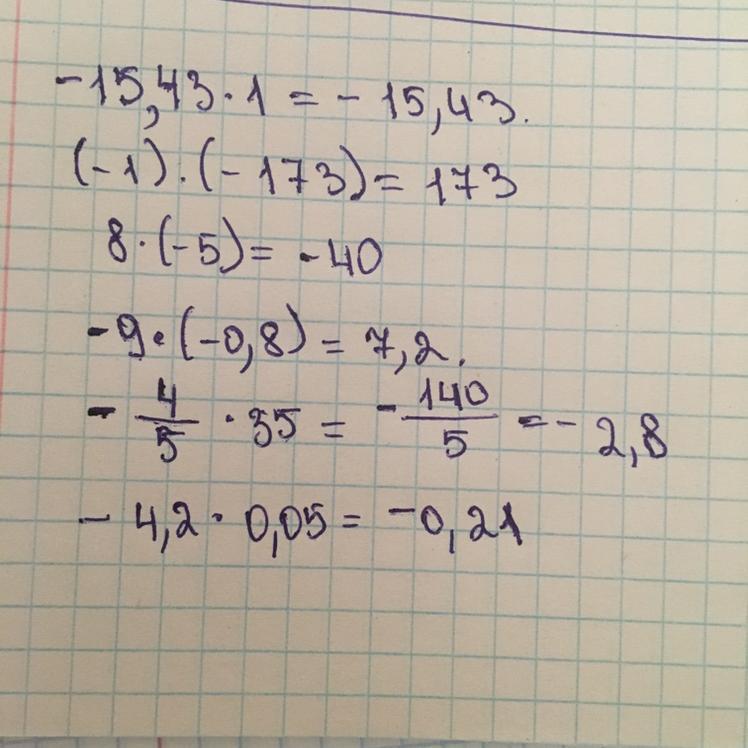 -15,43·1 = - 15,43.
(-1)·(-173) = 173
8·(-5) = -40
-9·(-0,8) = 7,2.
- 4/5 · 35 = - 140/5 = - 2,8
- 4,2 · 0,05 = -0,21